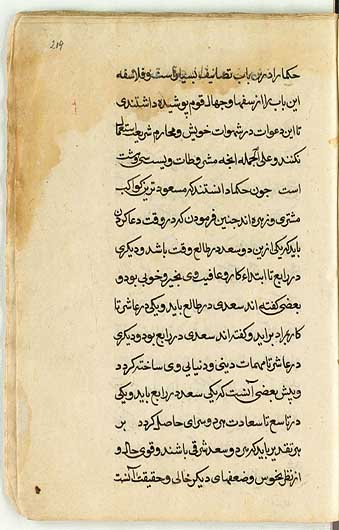 219
حکما را درین باب تصانیف بسیارست و فلاسفه
این باب را از سفها و جهال قوم پوشیده داشتندی
تا این دعوات در شهوات خویش و محارم شریعت
نکنند و علی الجمله آنچه مشروطات
است چون حکما دانستند که مسعود ترین کواکب
مشتری و زهره اند چنین فرمودن که در وقت دعا کردن
باید که یکی ازین دو سعد در طالع وقت باشد و دیگری
در رابع تا ابتداء کار و عاقبت وی بخیر و خوبی بود و
بعضی گفته اند سعدی در طالع باید و یکی در عاشر تا
کار براید و گفته اند سعدی در رابع بود و دیگری
در عاشر تا مهمات دینی و دنیایی وی ساخته گردد
و پیش بعضی آنست که یکی سعد در رابع باید و یکی
در تاسع تا سعادت هر دو سرای حاصل گردد بر
هر تقدیر باید که هر دو سعد شرقی باشند و قوی حال و
از نظر نحوس و ضعفهای دیگر خالی و حقیقت آنست